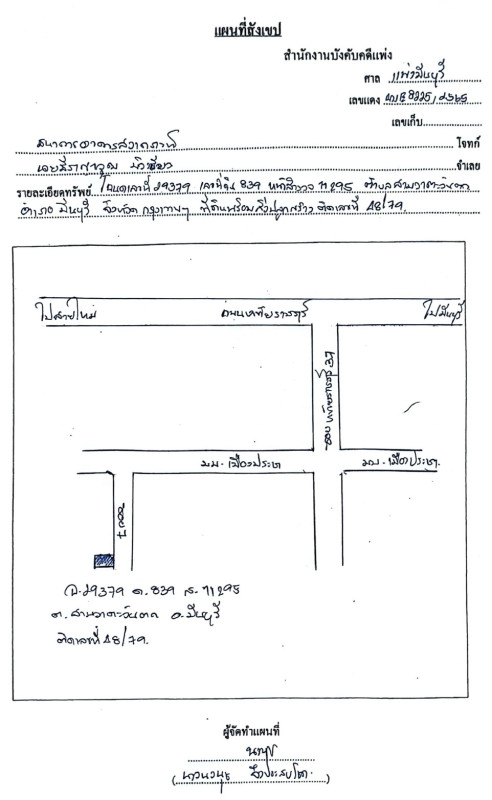 แผนที่สังเขป
สำนักงานบังคับคดีแพ่ง
ศาล แพ่งมีนบุรี
เลขแดง ผบE 8225/2565
เลขเก็บ
ธนาคารอาคารสงเคราะห์ โจทก์
จำเลย
รายละเอียดทรัพย์ โฉนดเลขที่ 29379 เลขที่ดิน 839 หน้าสำรวจ 71295 ตำบลสามวาตะวันตก
อำเภอ มีนบุรี จังหวัด กรุงเทพฯ ที่ดินพร้อมสิ่งปลูกสร้าง ติดเลขที่ 48/79.
ไปสายใหม่ ถนนหทัยราษฎร์ ไปมีนบุรี
ซอย หทัยราษฎร์ 37
มบ. เมืองประชา มบ. เมืองประชา.
ซอย 7
ฉ. 29379 ด. 839 ส. 71295
ต. สามวาตะวันตก อ. มีนบุรี
ติดเลขที่ 48/79.
ผู้จัดทำแผนที่